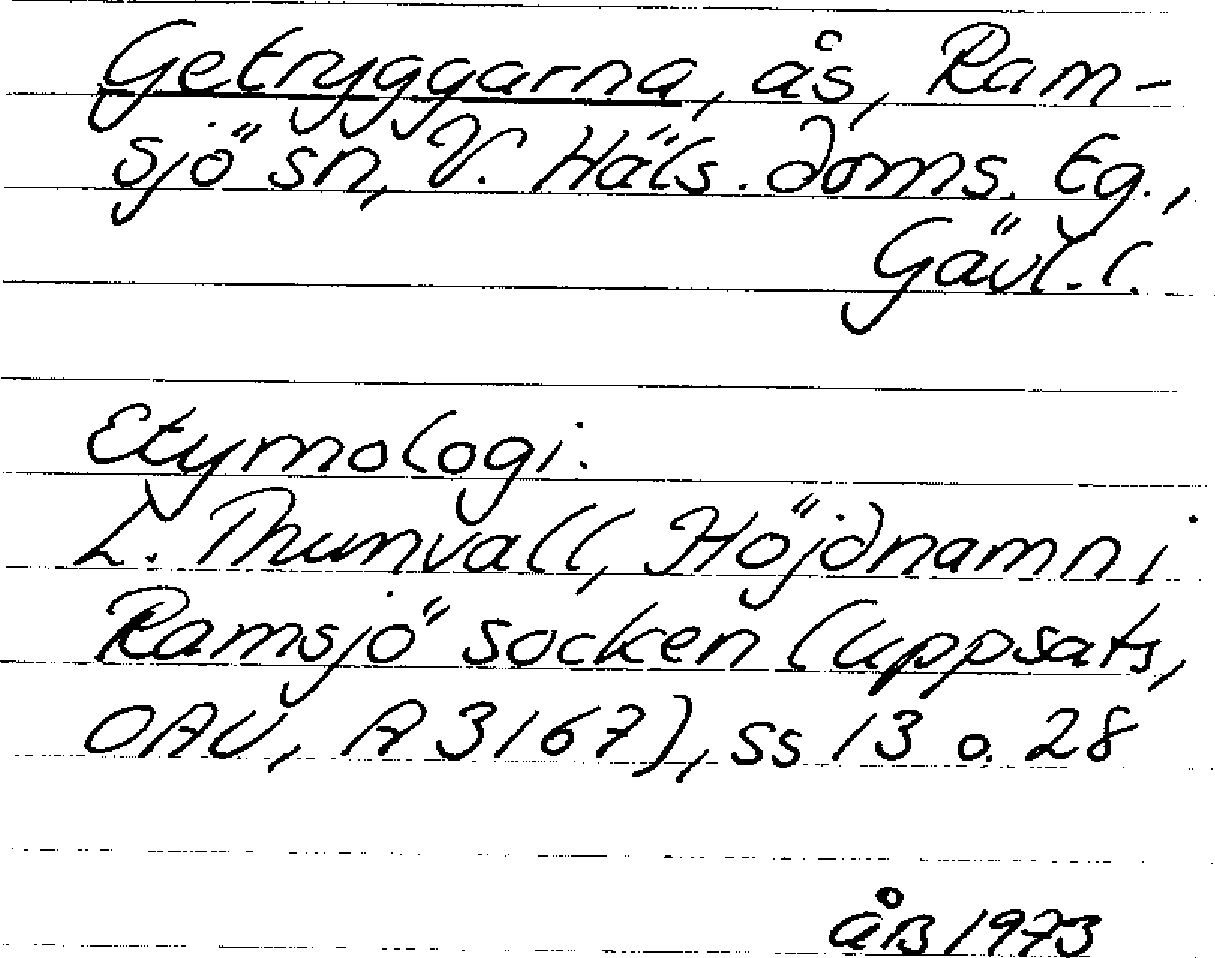 Getryggarna, ås, Ram-
sjö sn, V. Häls. doms. tg.,
Gävl. l.
Etymologi.
L. Thunvall, Höjdnamn i
Ramsjö socken (uppsats,
OAU, A 3167), ss 13 o. 28
åB 1973